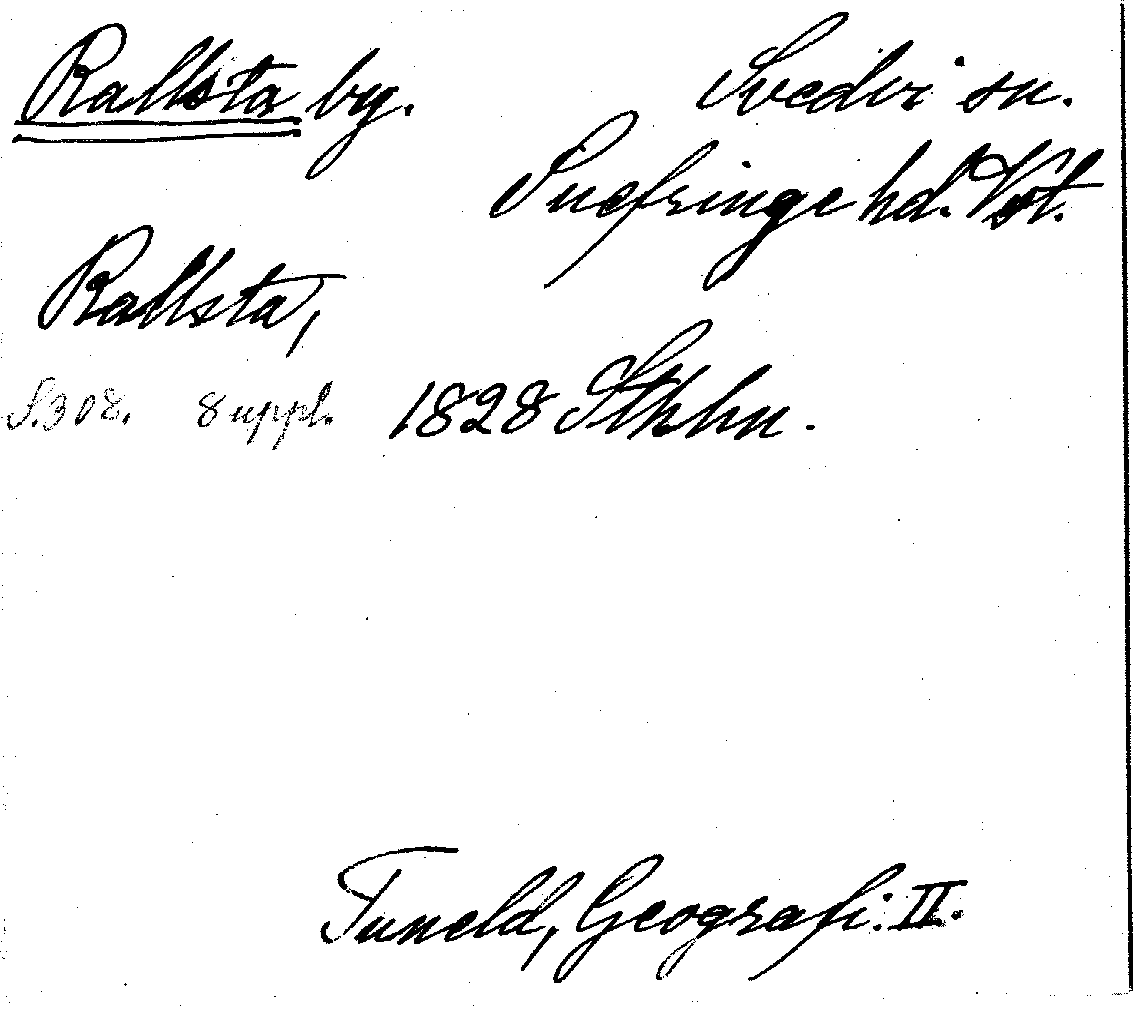 Rallsta by. Svedvi sn.
Snefringe hd. Vstl.
Rallsta,
S.308. 8 uppl. 1828 Sthhn.
Tuneld, Geografi. II.